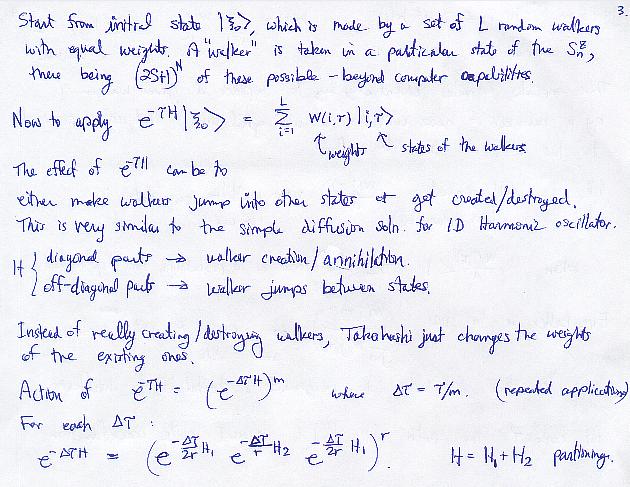 3.
Start from initial state |ξ₀⟩, which is made by a set of L random walkers
with equal weights. A "walker" is taken in a particular state of the Sₙᶻ,
there being (2S+1)ᴺ of these possible – beyond computer capabilities.
Now to apply e^{-τH} |ξ₀⟩ = Σ_{i=1}^{L} W(i,τ) |i,τ⟩
weights states of the walkers
The effect of e^{-τH} can be to
either make walkers jump into other states or get created/destroyed.
This is very similar to the simple diffusion soln. for 1D Harmonic oscillator.
H { diagonal parts → walker creation/annihilation.
off-diagonal parts → walker jumps between states.
Instead of really creating/destroying walkers, Takahashi just changes the weights
of the existing ones.
Action of e^{-τH} = (e^{-Δτ H})^m where Δτ = τ/m. (repeated application)
For each Δτ :
e^{-ΔτH} = (e^{-\frac{Δτ}{2r} H₁} e^{-\frac{Δτ}{r} H₂} e^{-\frac{Δτ}{2r} H₁})^r. H = H₁ + H₂ partitioning.